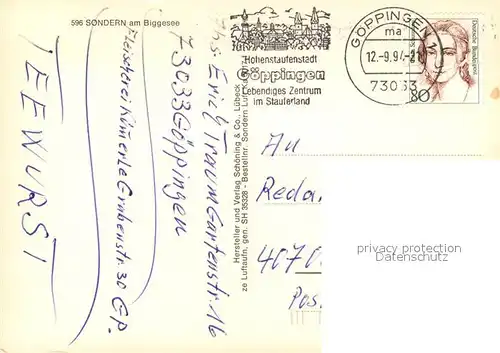 596 SONDERN am Biggesee
Hohenstaufenstadt
Göppingen
Lebendiges Zentrum
im Stauferland
GÖPPINGEN 11
ma
12.-9.97-21
73033
Deutsche Bundespost
80
Hersteller und Verlag Schöning & Co., Lübeck
ze Luftaufn. gen. SH 35328 - Bestellnr. Sondern Luftauf
Abs. Erich Traum Gartenstr 16
73033 Göppingen
Fleischerei Kümerle Grabenstr. 30 GP.
TEEWURST
An
Reda
4070
Pos.
privacy protection
VERDENSPOSTKORT